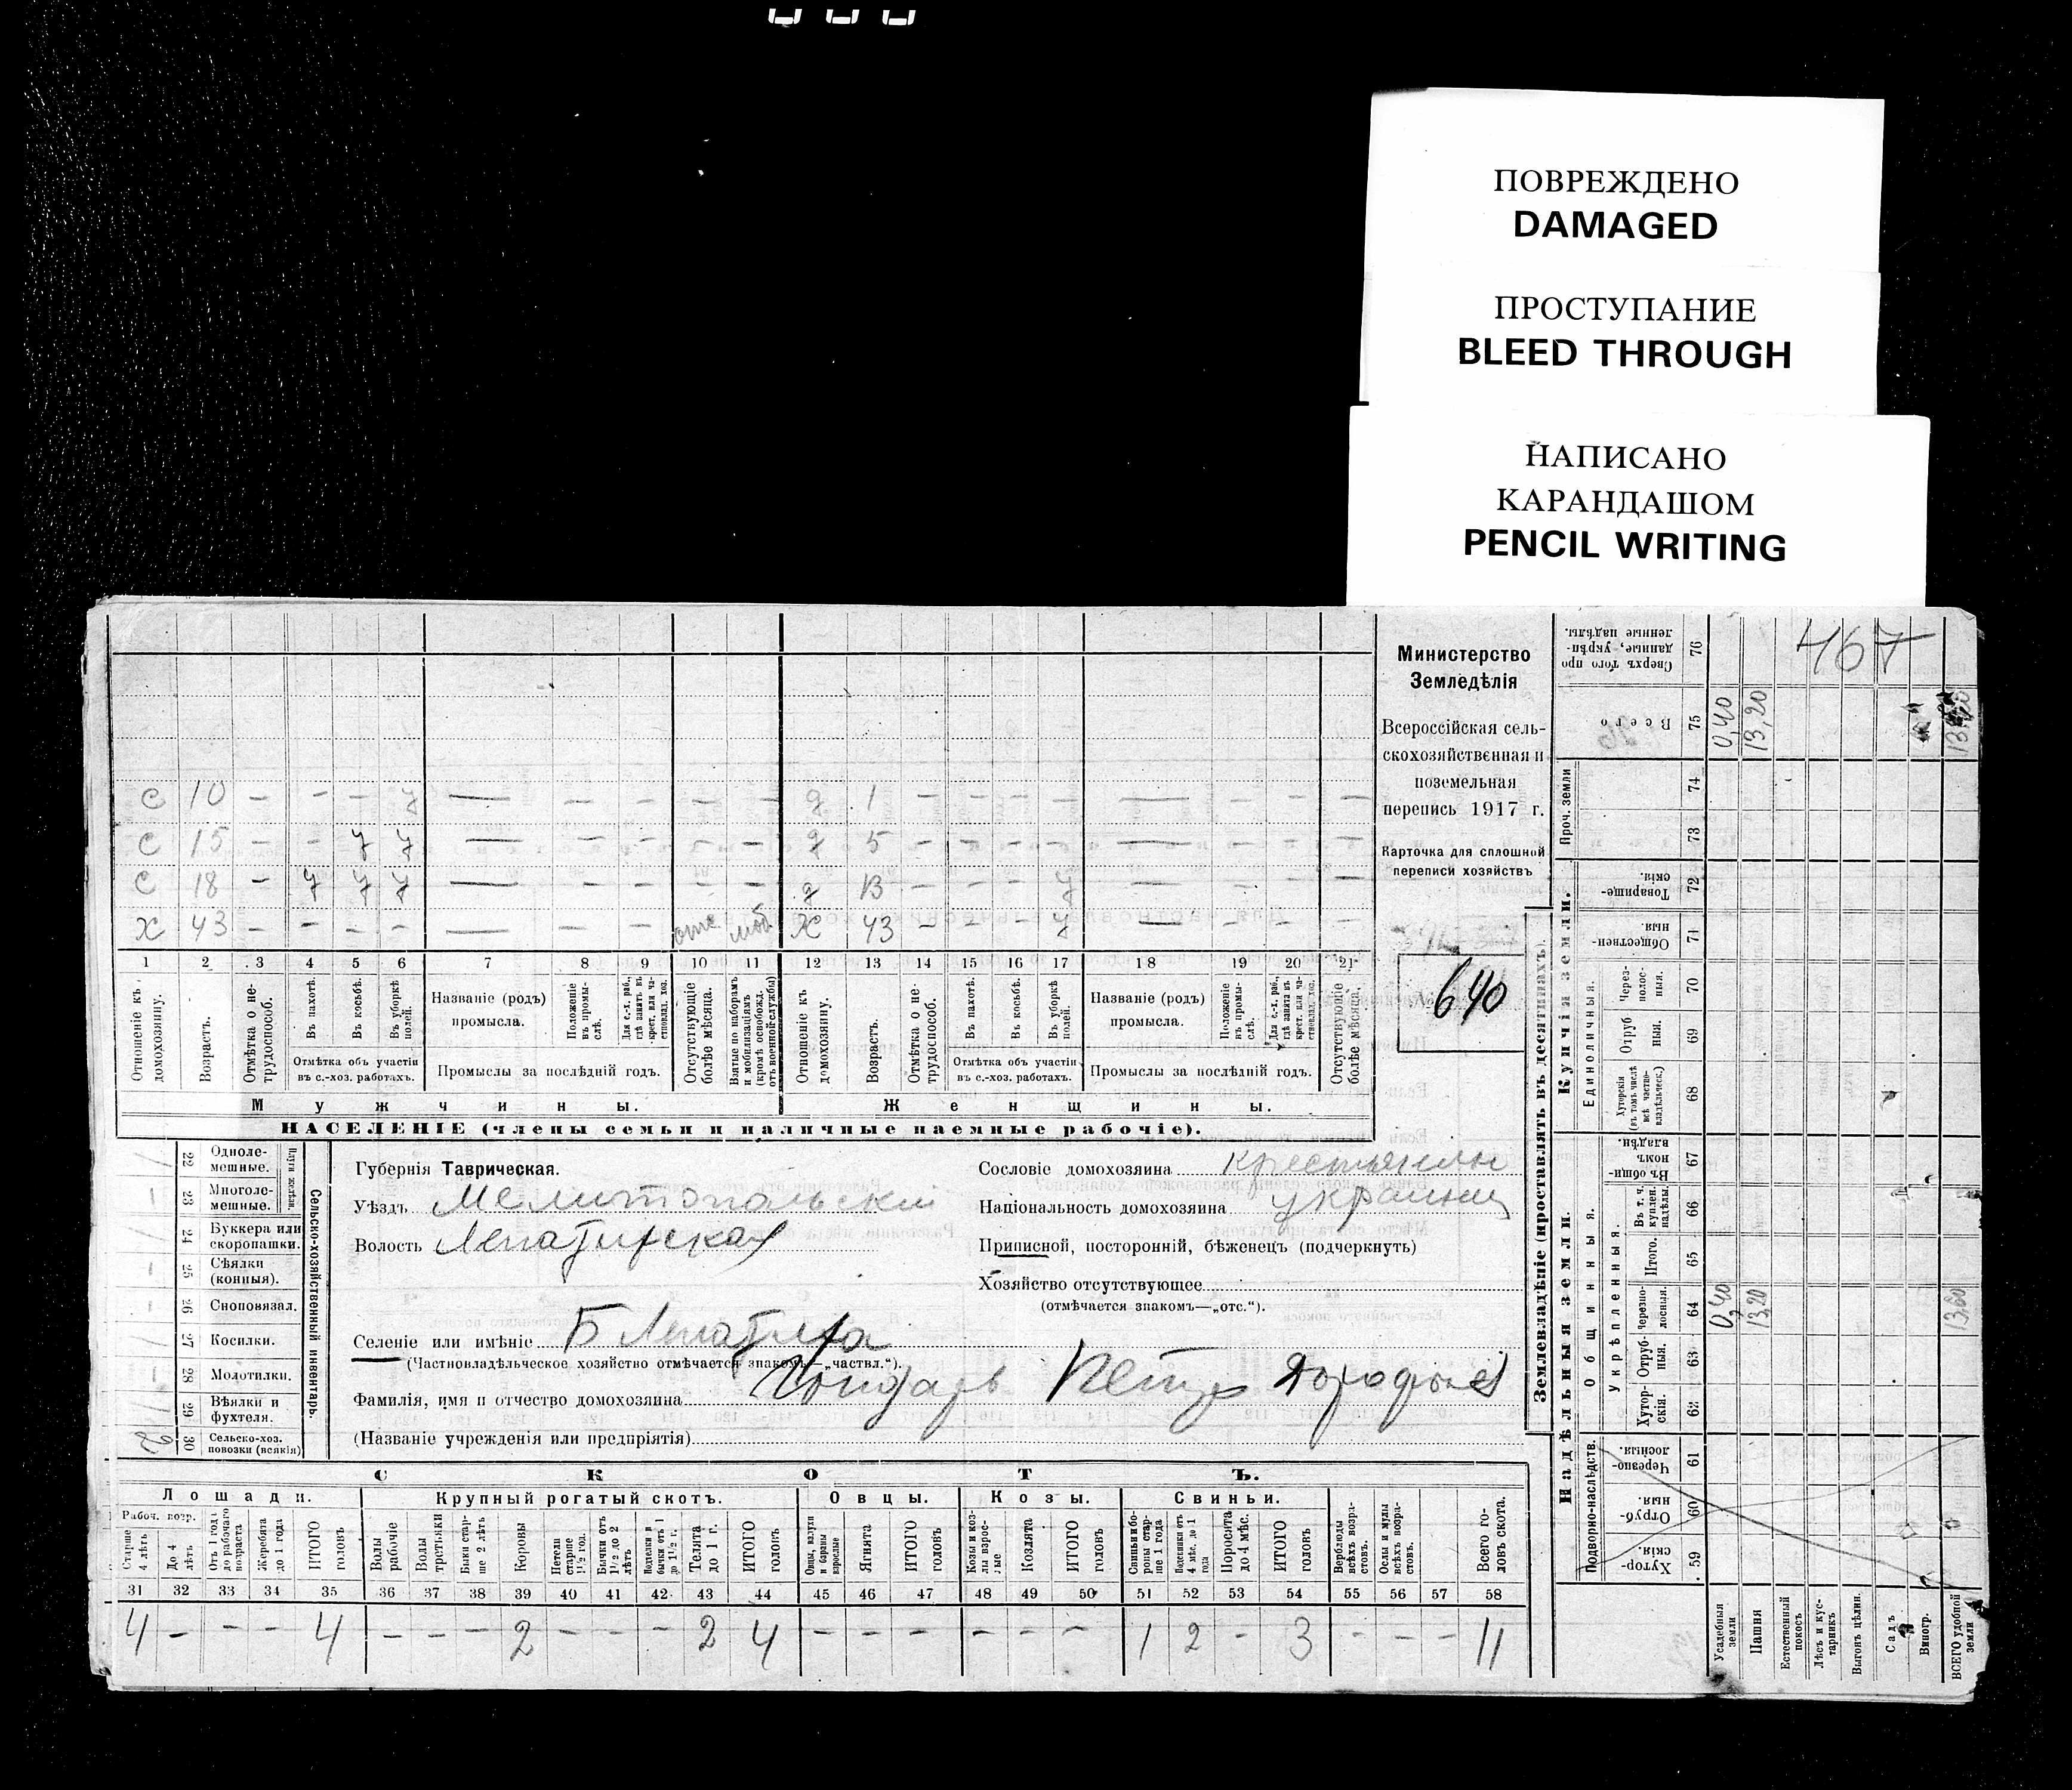 ПОВРЕЖДЕНО
DAMAGED
ПРОСТУПАНИЕ
BLEED THROUGH
НАПИСАНО
КАРАНДАШОМ
PENCIL WRITING
467
Министерство
Земледѣлія
Всероссійская сель-
скохозяйственная и
поземельная
перепись 1917 г.
Карточка для сплошной
переписи хозяйствъ
640
с 10 — — — у — — — — — д 1 — — — — — — — —
с 15 — — у у — — — — — д 5 — — — — — — — —
с 18 — у у у — — — — — д 13 — — — у — — — —
х 43 — — — — — — — отс моб х 43 — — — у — — — —
1 2 3 4 5 6 7 8 9 10 11 12 13 14 15 16 17 18 19 20 21
Отношеніе къ домохозяину.
Возрастъ.
Отмѣтка о не-трудоспособ.
Въ пахотѣ.
Въ косьбѣ.
Въ уборкѣ полей.
Отмѣтка объ участіи
въ с.-хоз. работахъ.
Названіе (родъ)
промысла.
Положеніе въ промы-слѣ.
Для с.-х. раб., гдѣ занятъ въ крест. или ча-стновлад. хоз.
Промыслы за послѣдній годъ.
Отсутствующіе болѣе мѣсяца.
Взятые по наборамъ и мобилизаціямъ (кромѣ освобожд. отъ военной службы)
Отношеніе къ домохозяину.
Возрастъ.
Отмѣтка о не-трудоспособ.
Въ пахотѣ.
Въ косьбѣ.
Въ уборкѣ полей.
Отмѣтка объ участіи
въ с.-хоз. работахъ.
Названіе (родъ)
промысла.
Положеніе въ промы-слѣ.
Для с.-х. раб., гдѣ занята въ крест. или ча-стновлад. хоз.
Промыслы за послѣдній годъ.
Отсутствующіе болѣе мѣсяца.
Мужчины.
Женщины.
НАСЕЛЕНІЕ (члены семьи и наличные наемные рабочіе).
Сельско-хозяйственный инвентарь.
Плуги желѣзн.
22 Одноле-мешные.
23 Многоле-мешные.
24 Буккера или скоропашки.
25 Сѣялки (конныя).
26 Сноповязал.
27 Косилки.
28 Молотилки.
29 Вѣялки и фухтеля.
30 Сельско-хоз. повозки (всякія) 2
Губернія Таврическая.
Уѣздъ Мелитопольскій
Волость Лепатихская
Селеніе или имѣніе Б Лепатиха
(Частновладѣльческое хозяйство отмѣчается знакомъ—„частвл.“).
Фамилія, имя и отчество домохозяина Гондарь Петръ Дорофеев
(Названіе учрежденія или предпріятія)
Сословіе домохозяина крестьянин
Національность домохозяина украинец
Приписной, посторонній, бѣженецъ (подчеркнуть)
Хозяйство отсутствующее
(отмѣчается знакомъ—„отс.“).
СКОТЪ.
Лошади. Крупный рогатый скотъ. Овцы. Козы. Свиньи.
Рабоч. возр.
Старше 4 лѣтъ
До 4 лѣтъ
Отъ 1 года до рабочаго возраста
Жеребята до 1 года
ИТОГО головъ
Волы рабочіе
Волы третьяки
Быки стар-ше 2 лѣтъ
Коровы
Нетели старше 1½ год.
Бычки отъ 1½ до 2 лѣтъ
Телята до 1 г.
ИТОГО головъ
Овцы, валухи и бараны взрослые
Ягнята
ИТОГО головъ
Козы и коз-лы взрос-лые
Козлята
ИТОГО головъ
Свиньи и бо-ровы стар-ше 1 года
Подсвинки отъ 4 мѣс. до 1 года
Поросята до 4 мѣс.
ИТОГО головъ
Верблюды всѣхъ возра-стовъ.
Ослы и мулы всѣхъ возра-стовъ.
Всего го-ловъ скота.
31 32 33 34 35 36 37 38 39 40 41 42 43 44 45 46 47 48 49 50 51 52 53 54 55 56 57 58
4 — — — 4 — — — 2 — — — 2 4 — — — — — — 1 2 — 3 — — — 11
Землевладѣніе (проставлять въ десятинахъ).
Надѣльныя земли.
Купчія земли.
Проч. земли
Подворно-наслѣдств.
Общинныя.
Укрѣпленныя.
Единоличныя.
Хутор-скія. 59
Отруб-ныя. 60
Черезпо-лосныя. 61
Хутор-скія. 62
Отруб-ныя. 63
Черезпо-лосныя. 64 0,40 13,20 13,60
Итого. 65
Въ т. ч. куплен. надѣлы. 66
Въ общин-номъ владѣн. 67
Хуторскія (въ томъ числѣ всѣ частно-владѣльческ.) 68
Отруб ныя. 69
Через-полос-ныя. 70
Обществен-ныя. 71
Товарище-скія. 72
73
74
Всего 75 0,40 13,20
Сверхъ того про данные, укрѣп-ленные надѣлы. 76
Усадебныя земли
Пашня
Естественный покосъ
Лѣсъ и кус-тарникъ
Выгонъ цѣлин.
Садъ
Виногр.
ВСЕГО удобной земли